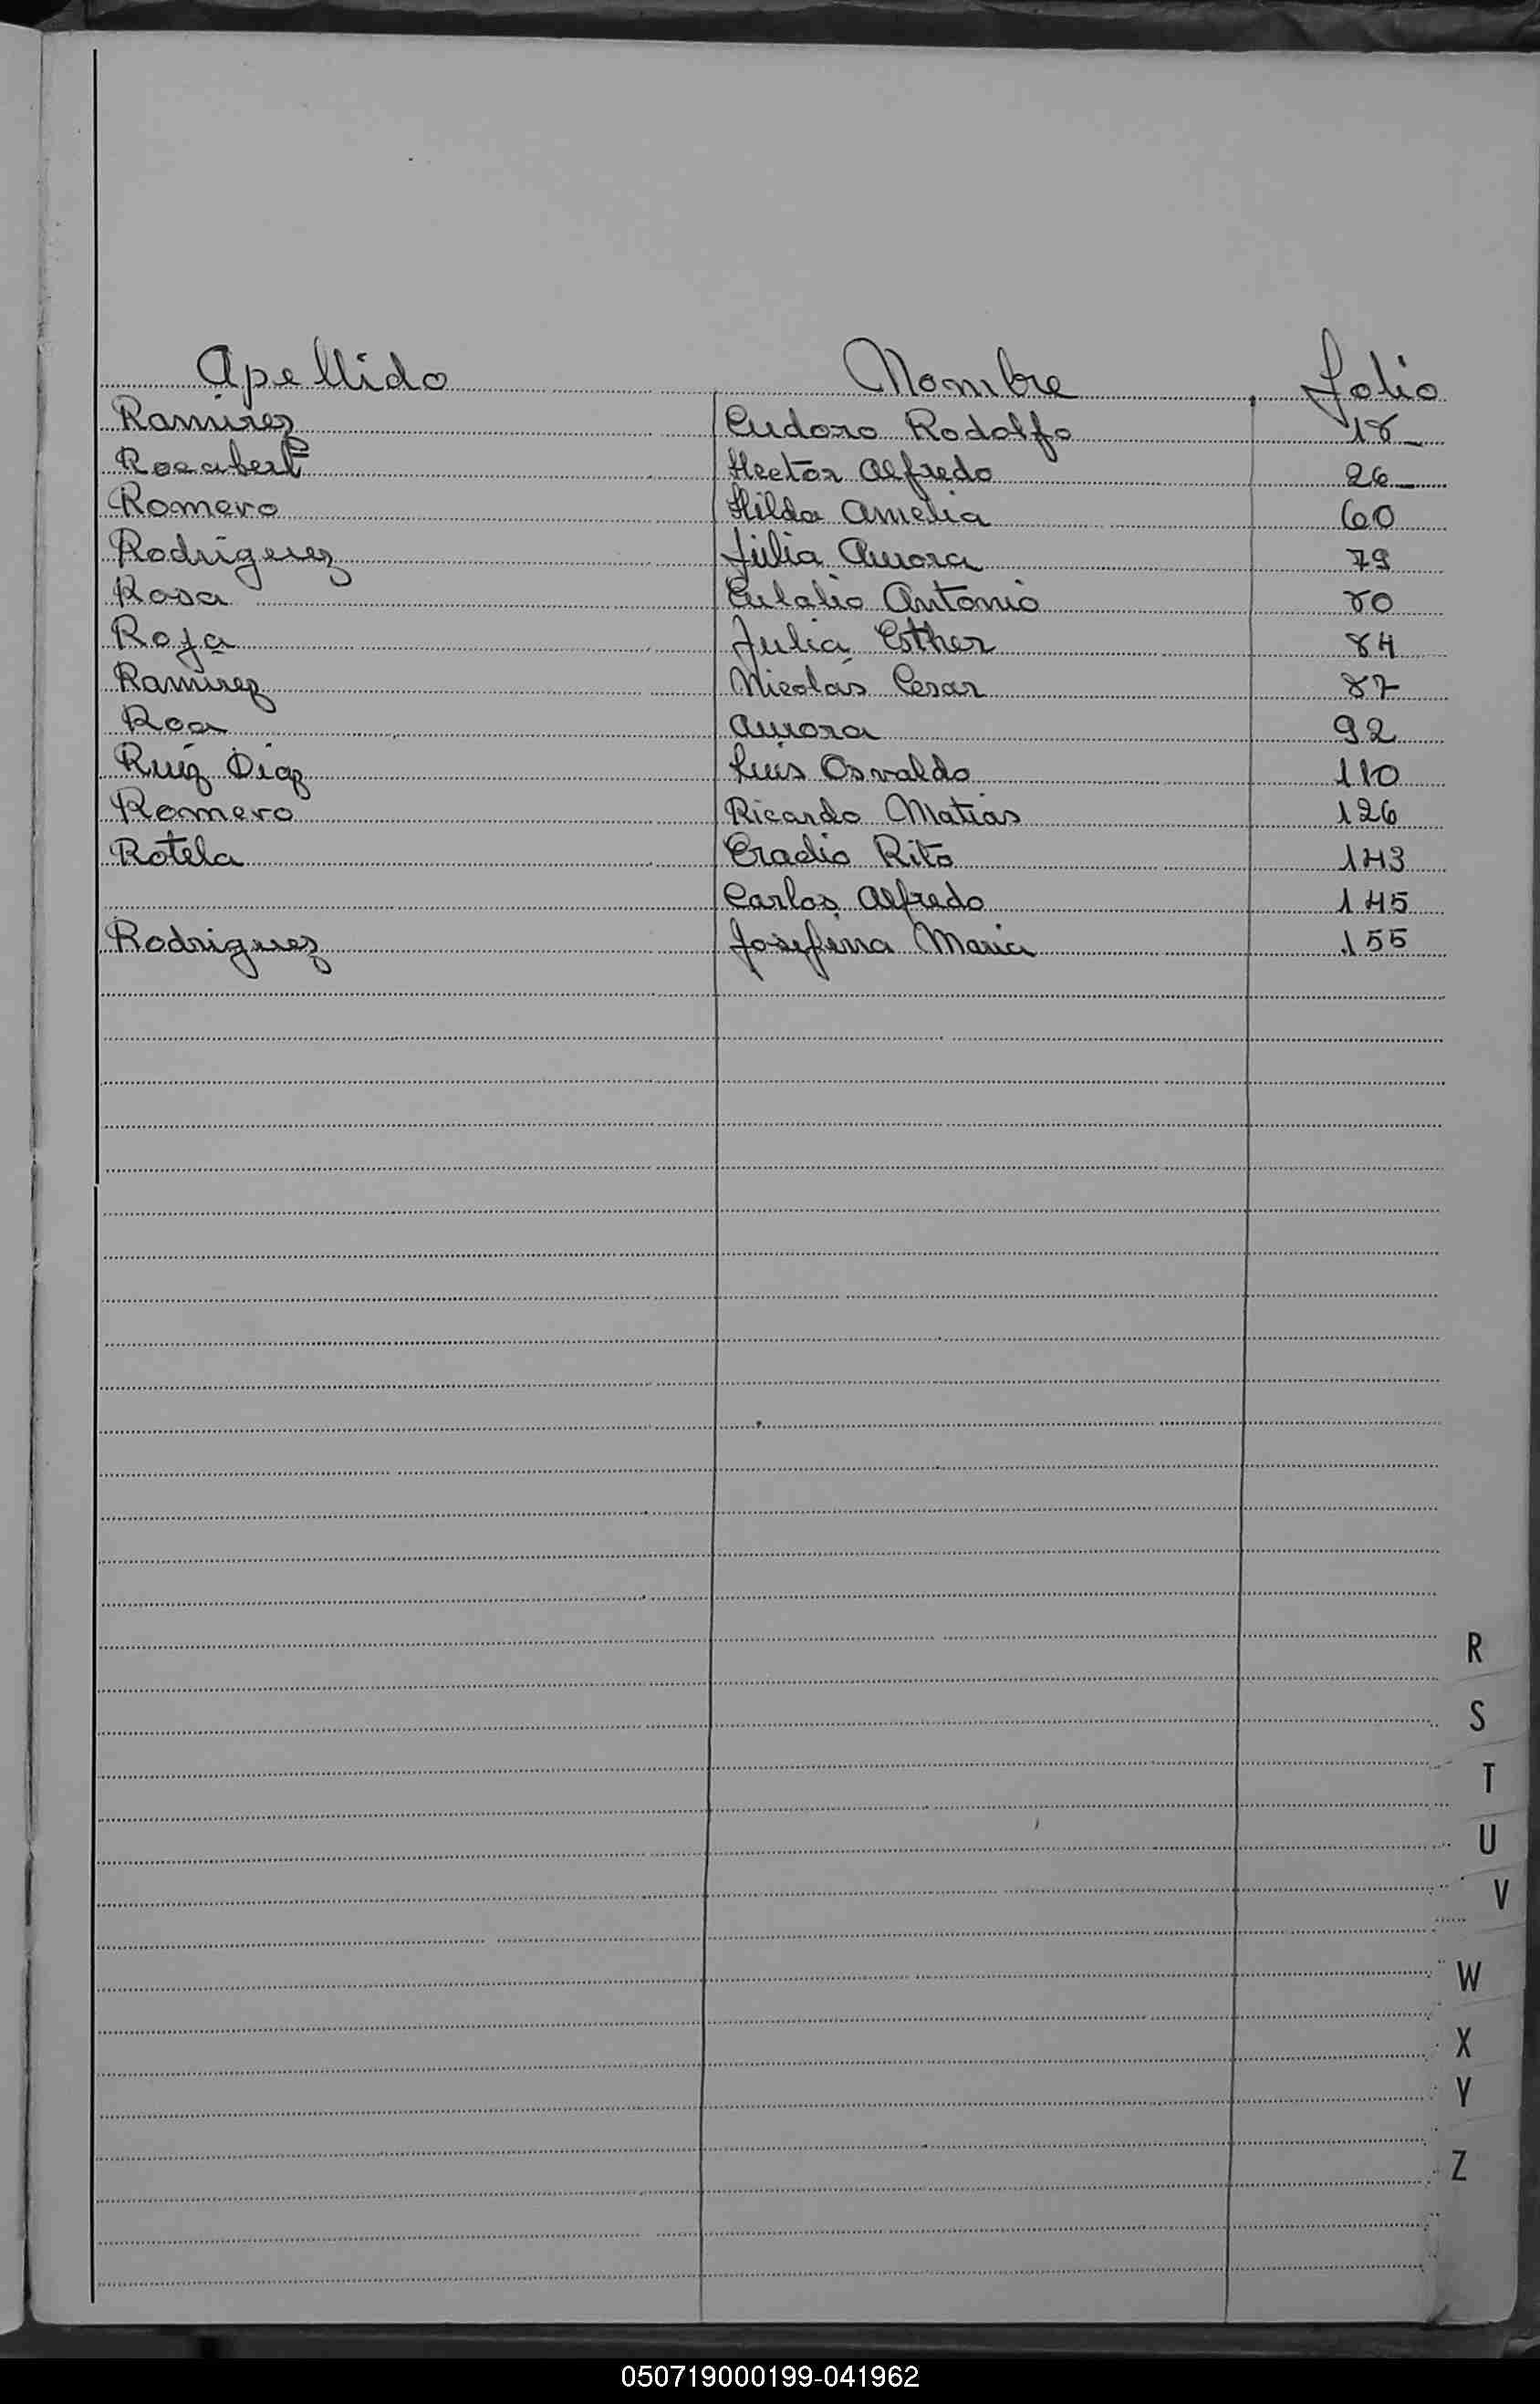 Apellido Nombre Folio
Ramirez Eudoro Rodolfo 18
Rocabert Hector Alfredo 26
Romero Hilda Amelia 60
Rodriguez Julia Aurora 79
Rosa Eulalio Antonio 80
Roja Julia Esther 84
Ramirez Nicolás Cesar 87
Roa Aurora 92
Ruíz Díaz Luis Osvaldo 110
Romero Ricardo Matias 126
Rotela Eradio Rito 143
Carlos Alfredo 145
Rodriguez Josefina Maria 155
R
S
T
U
V
W
X
Y
Z
050719000199-041962